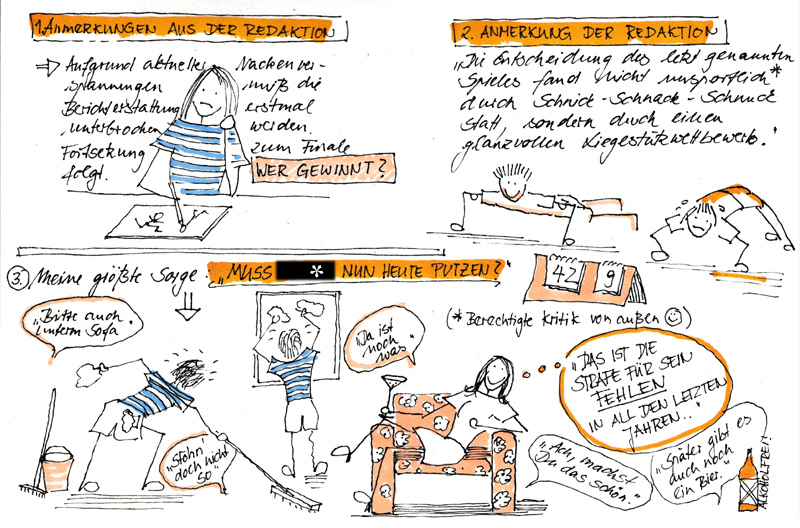 1. ANMERKUNGEN AUS DER REDAKTION
⇨ Aufgrund aktueller Nackenver-
spannungen muß die
Berichterstattung erstmal
unterbrochen werden.
Fortsetzung zum Finale
folgt. WER GEWINNT?
2. ANMERKUNG DER REDAKTION
„Die Entscheidung des letzt genannten
Spieles fand nicht unsportlich*
durch Schnick-Schnack-Schnuck
statt, sondern durch einen
glanzvollen Liegestützwettbewerb."
42 9
(* Berechtigte Kritik von außen ☺)
3. Meine größte Sorge: „MUSS * NUN HEUTE PUTZEN?"
„Bitte auch
unterm Sofa."
„Stöhn'
doch nicht
so"
„Da ist
noch
was"
„DAS IST DIE
STRAFE FÜR SEIN
FEHLEN
IN ALL DEN LETZTEN
JAHREN.."
„Ach, machst
Du das schön."
„Später gibt es
auch noch
ein Bier."
ALKOHOLFREI!